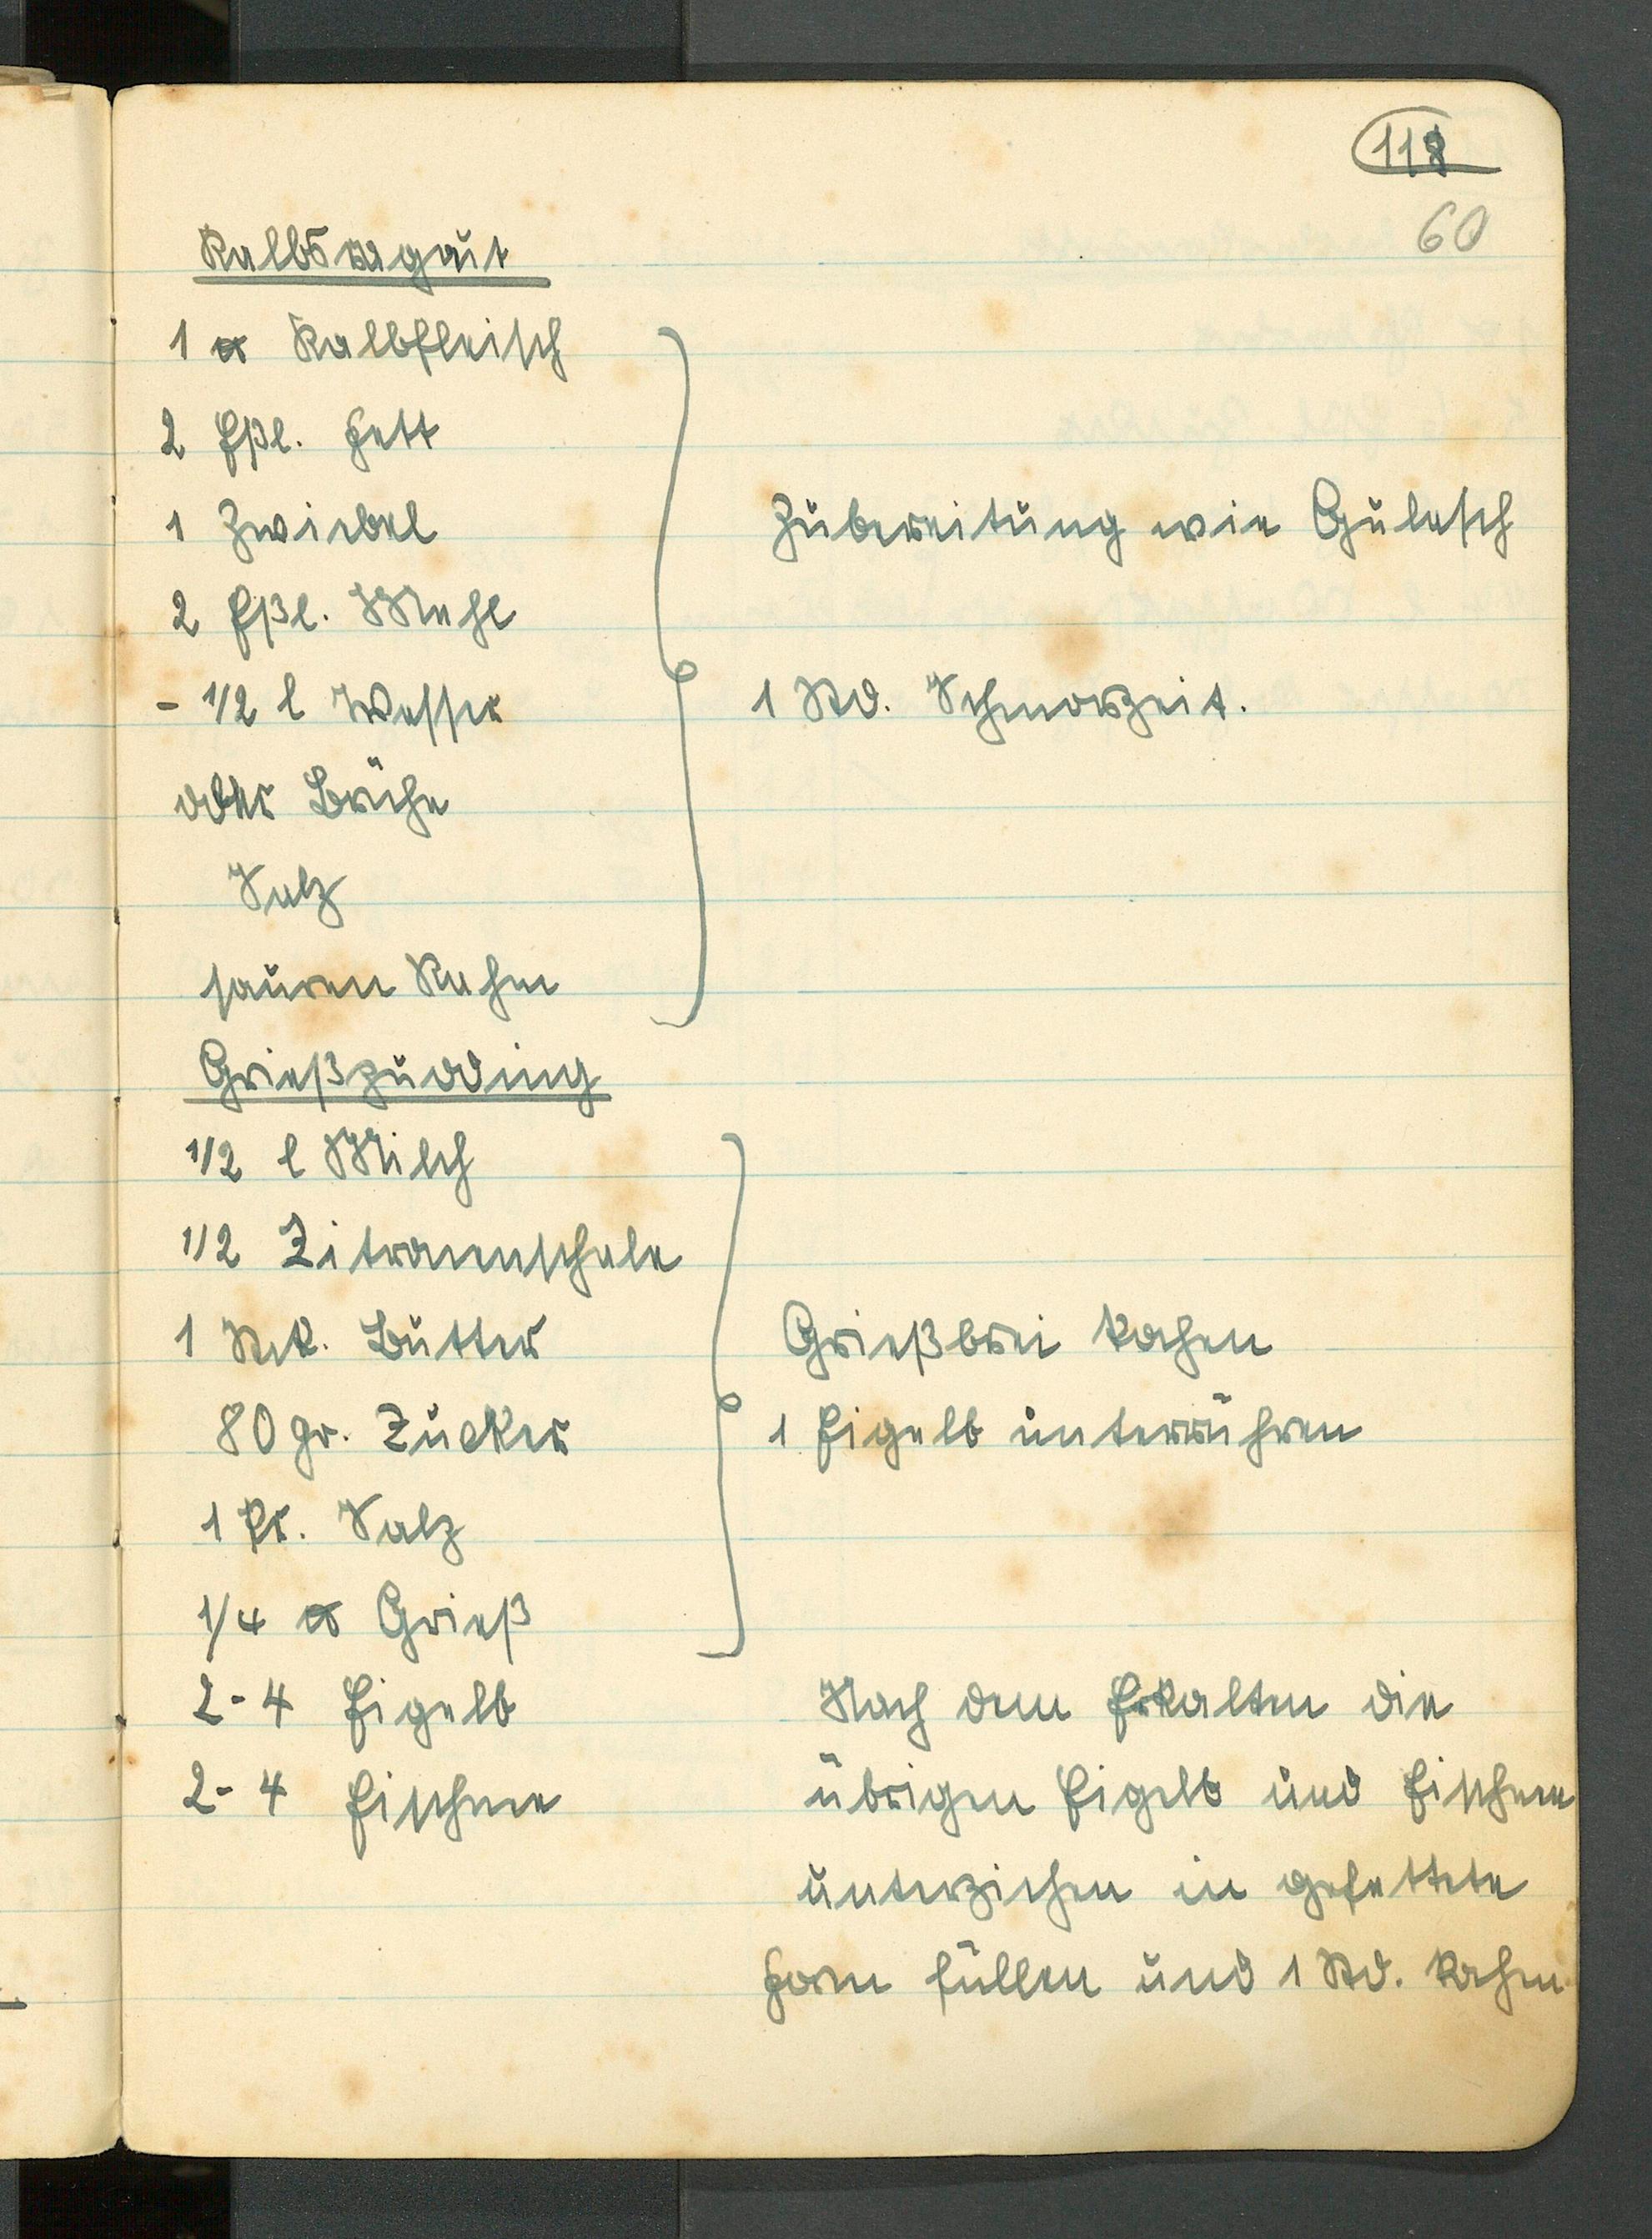 118
60
Kalbsragout
1 ℔ Kalbfleisch
2 Eßl. Fett
1 Zwiebel
2 Eßl. Mehl
- 1/2 l Wasser
oder Brühe
Salz
sauren Rahm
Zubereitung wie Gulasch
1 Std. Schmorzeit.
Grießpudding
1/2 l Milch
1/2 Zitronenschale
1 Stck. Butter
80 gr. Zucker
1 Pr. Salz
1/4 ℔ Grieß
Grießbrei kochen
1 Eigelb unterrühren
2-4 Eigelb
2-4 Eischnee
Nach dem Erkalten die
übrigen Eigelb und Eischnee
unterziehen in gefettete
Form füllen und 1 Std. kochen